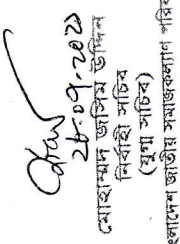 ২৮-০৭-২০২১
মোহাম্মদ জসিম উদ্দিন
নির্বাহী সচিব
(যুগ্ম সচিব)
বাংলাদেশ জাতীয় সমাজকল্যাণ পরিষদ